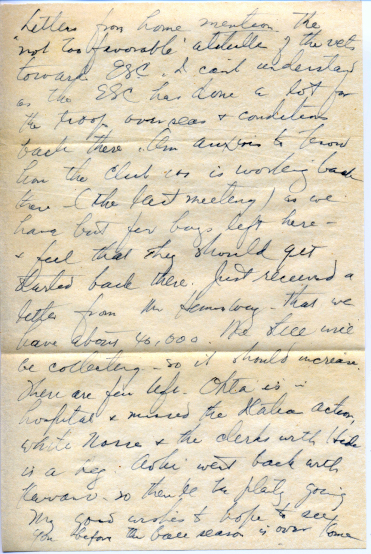 Letters from home mention the
"not too favorable" attitude of the vets
toward ESC. I can't understand
as the ESC has done a lot for
the troops overseas & conditions
back there. Am anxious to know
how the Club 100 is working back
there - (the last meeting) as we
have but few boys left here -
& feel that they should get
started back there. Just received a
letter from Mr - that we
have about 40,000. We still will
be collecting - so it should increase.
There are few left. Ohta is in
hospital & missed the Italian action,
white & the clerks with Hide
is a . went back with
- so there'll be plenty going
My good wishes & hope to see
you before the ball season is over